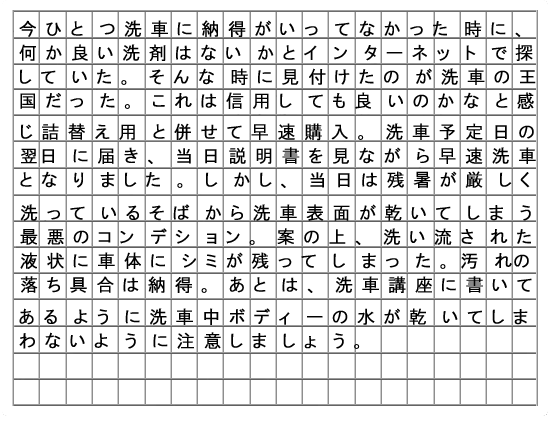 今ひとつ洗車に納得がいってなかった時に、
何か良い洗剤はないかとインターネットで探
していた。そんな時に見付けたのが洗車の王
国だった。これは信用しても良いのかなと感
じ詰替え用と併せて早速購入。洗車予定日の
翌日に届き、当日説明書を見ながら早速洗車
となりました。しかし、当日は残暑が厳しく
洗っているそばから洗車表面が乾いてしまう
最悪のコンデション。案の上、洗い流された
液状に車体にシミが残ってしまった。汚れの
落ち具合は納得。あとは、洗車講座に書いて
あるように洗車中ボディーの水が乾いてしま
わないように注意しましょう。